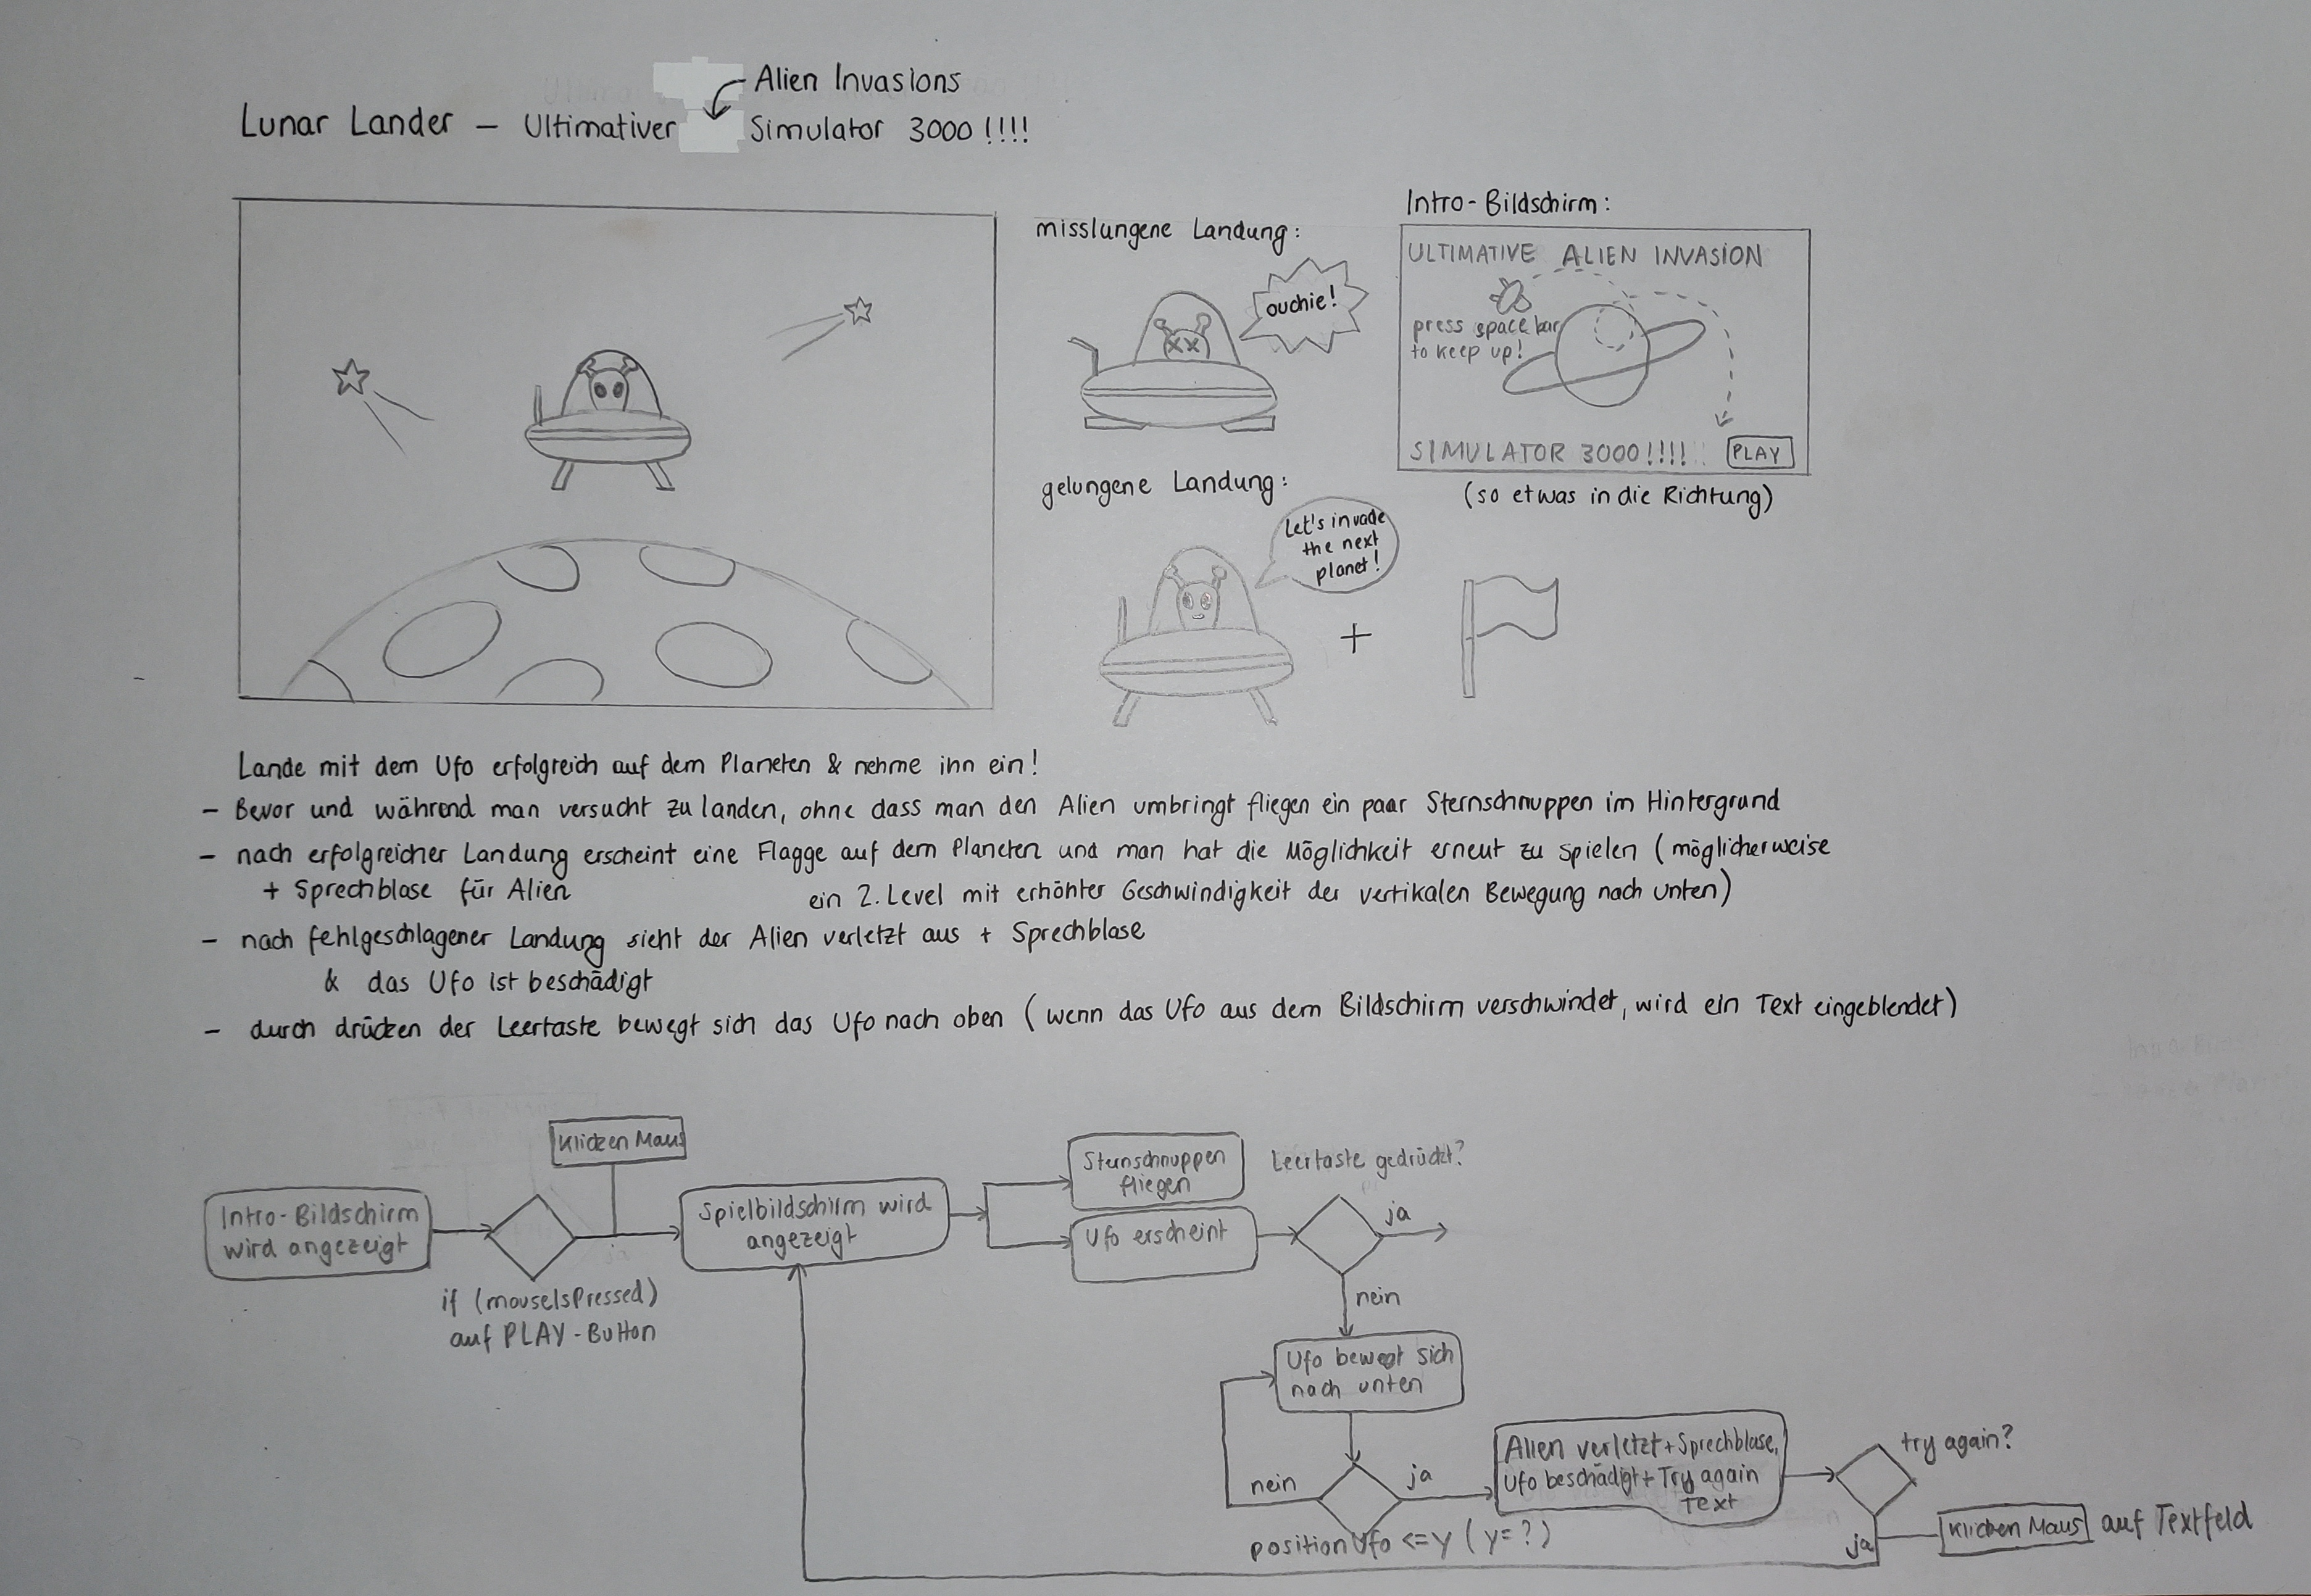 Alien Invasions
Lunar Lander – Ultimativer Simulator 3000!!!!
misslungene Landung:
ouchie!
Intro-Bildschirm:
ULTIMATIVE ALIEN INVASION
press space bar
to keep up!
SIMULATOR 3000!!!!
PLAY
(so etwas in die Richtung)
gelungene Landung:
Let's invade
the next
planet!
+
Lande mit dem Ufo erfolgreich auf dem Planeten & nehme ihn ein!
– Bevor und während man versucht zu landen, ohne dass man den Alien umbringt fliegen ein paar Sternschnuppen im Hintergrund
– nach erfolgreicher Landung erscheint eine Flagge auf dem Planeten und man hat die Möglichkeit erneut zu spielen (möglicherweise
+ Sprechblase für Alien
ein 2. Level mit erhöhter Geschwindigkeit der vertikalen Bewegung nach unten)
– nach fehlgeschlagener Landung sieht der Alien verletzt aus + Sprechblase
& das Ufo ist beschädigt
– durch drücken der Leertaste bewegt sich das Ufo nach oben (wenn das Ufo aus dem Bildschirm verschwindet, wird ein Text eingeblendet)
Klicken Maus
Intro-Bildschirm
wird angezeigt
if (mouseIsPressed)
auf PLAY-Button
Spielbildschirm wird
angezeigt
Sternschnuppen
fliegen
Ufo erscheint
Leertaste gedrückt?
ja
nein
Ufo bewegt sich
nach unten
nein
ja
positionUfo <= y (y=?)
Alien verletzt + Sprechblase,
Ufo beschädigt + Try again
Text
try again?
ja
Klicken Maus auf Textfeld